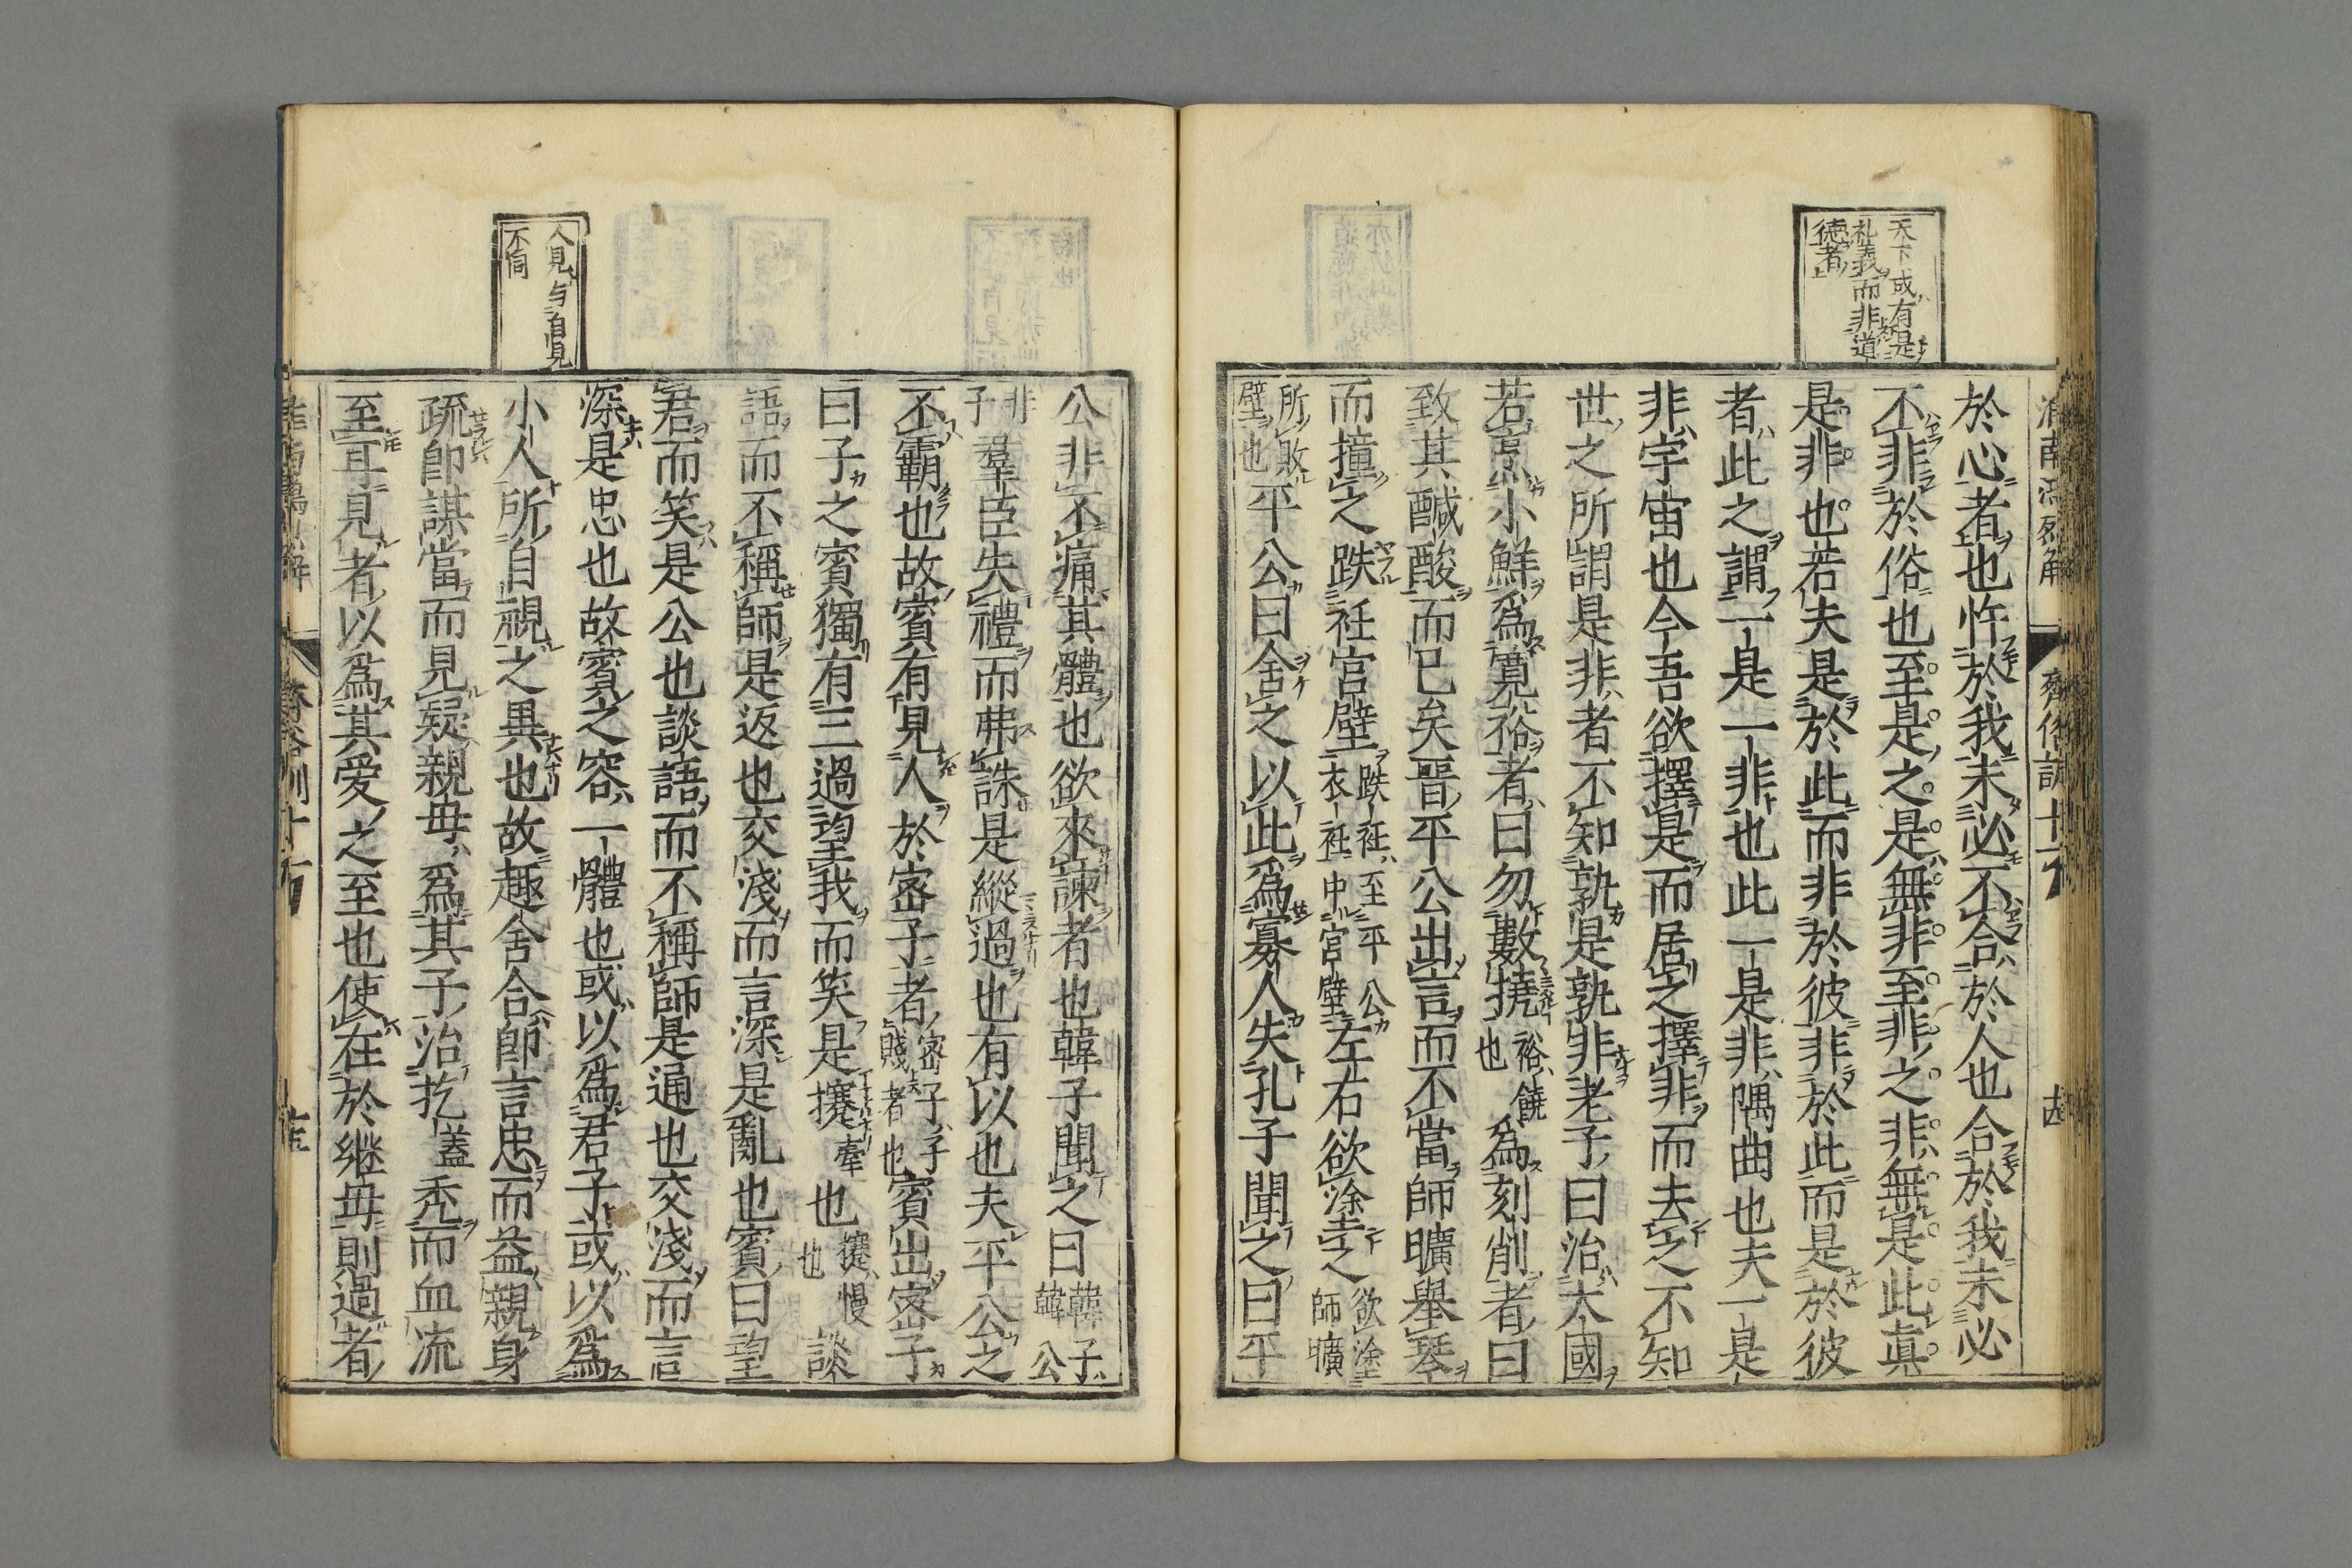 天下或有是
礼義而非道
徳者
於心者也忤於我未必不合於人也合於我未必
不非於俗也至是之是無非至非之非無是此真
是非也若夫是於此而非於彼非於此而是於彼
者此之謂一是一非也此一是非隅曲也夫一是
非宇宙也今吾欲擇是而居之擇非而去之不知
世之所謂是非者不知孰是孰非老子曰治大國
若烹小鮮為寛裕者曰勿數撓裕饒也為刻削者曰
致其醎酸而已矣晉平公出言而不當師曠舉琴
而撞之跌衽宮壁跌衽至平公衣衽中宮壁左右欲塗之欲塗師曠
所敗壁也平公曰舍之以此為寡人失孔子聞之曰平
齊俗訓十一
人見与自見
不同
公非不痛其體也欲來諫者也韓子聞之曰韓子韓公
非子羣臣失禮而弗誅是縱過也有以也夫平公之
不霸也故賓有見人於宻子者宻子子賤者也賓出宻子
曰子之賓獨有三過望我而笑是攓牽也攓慢也談
語而不稱師是返也交淺而言深是亂也賓曰望
君而笑是公也談語而不稱師是通也交淺而言
深是忠也故賓之容一體也或以為君子或以為
小人所自視之異也故趣舍合即言忠而益親身
疏即謀當而見疑親母為其子治扢蓋禿而血流
至耳見者以為其愛之至也使在於継母則過者